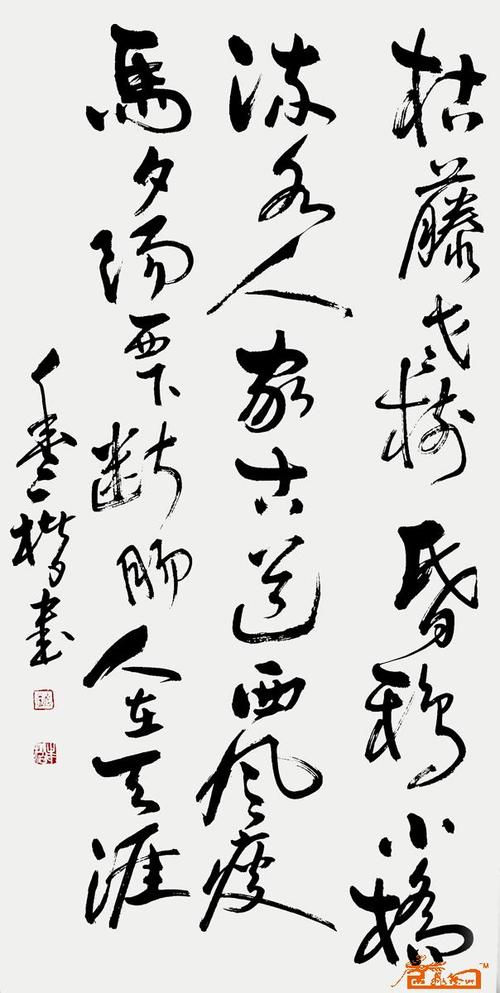 枯藤老樹昏鴉小橋
流水人家古道西風瘦
馬夕陽西下斷腸人在天涯
書